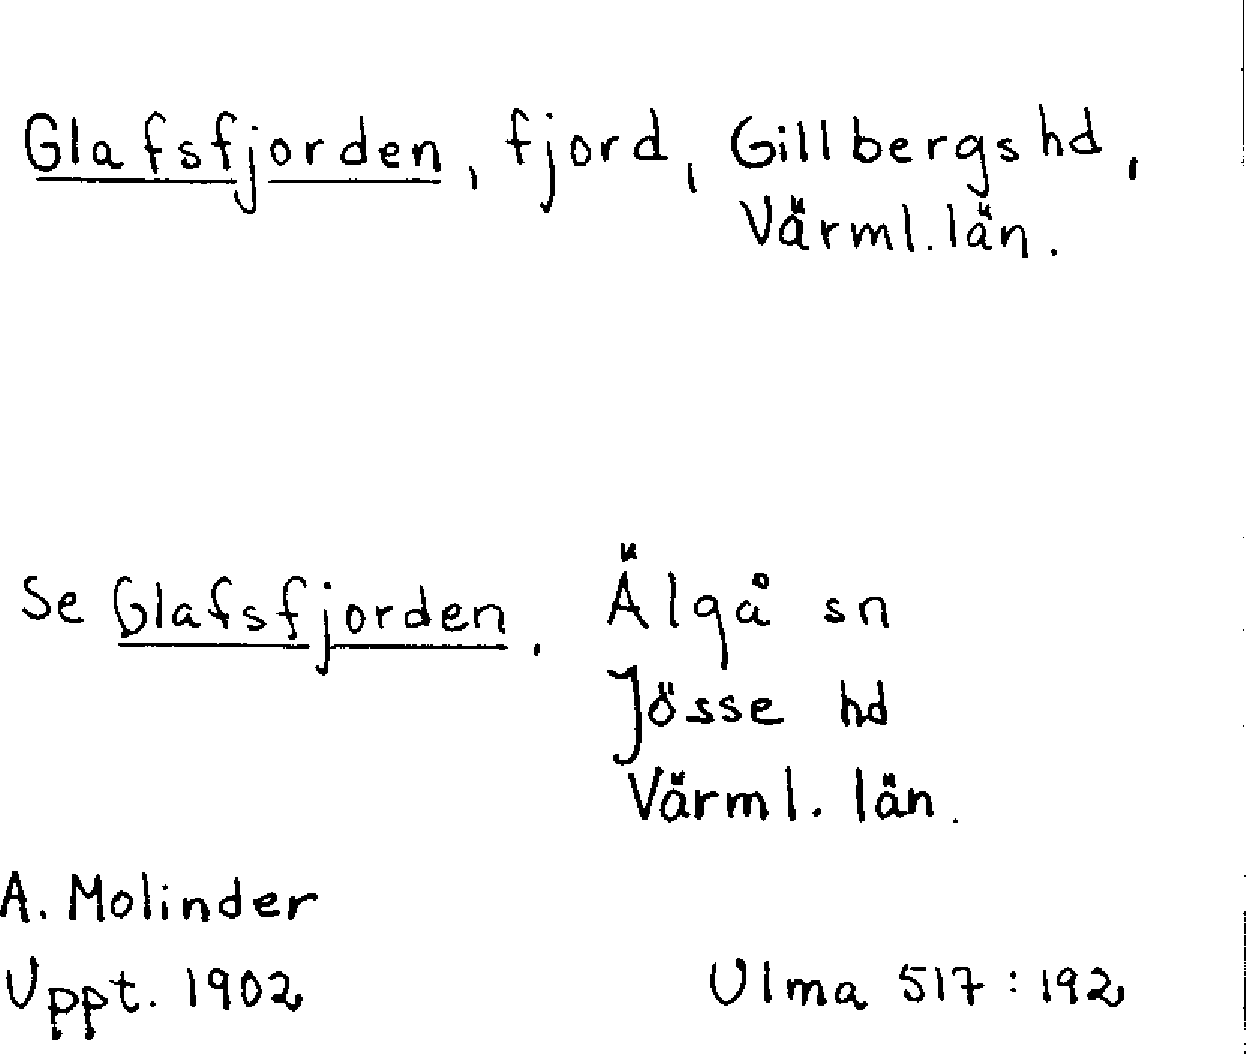 Glafsfjorden, fjord, Gillbergs hd,
Värml. län.
Se Glafsfjorden. Älgå sn
Jösse hd
Värml. län.
A. Molinder
Uppt. 1902 Ulma 517:192